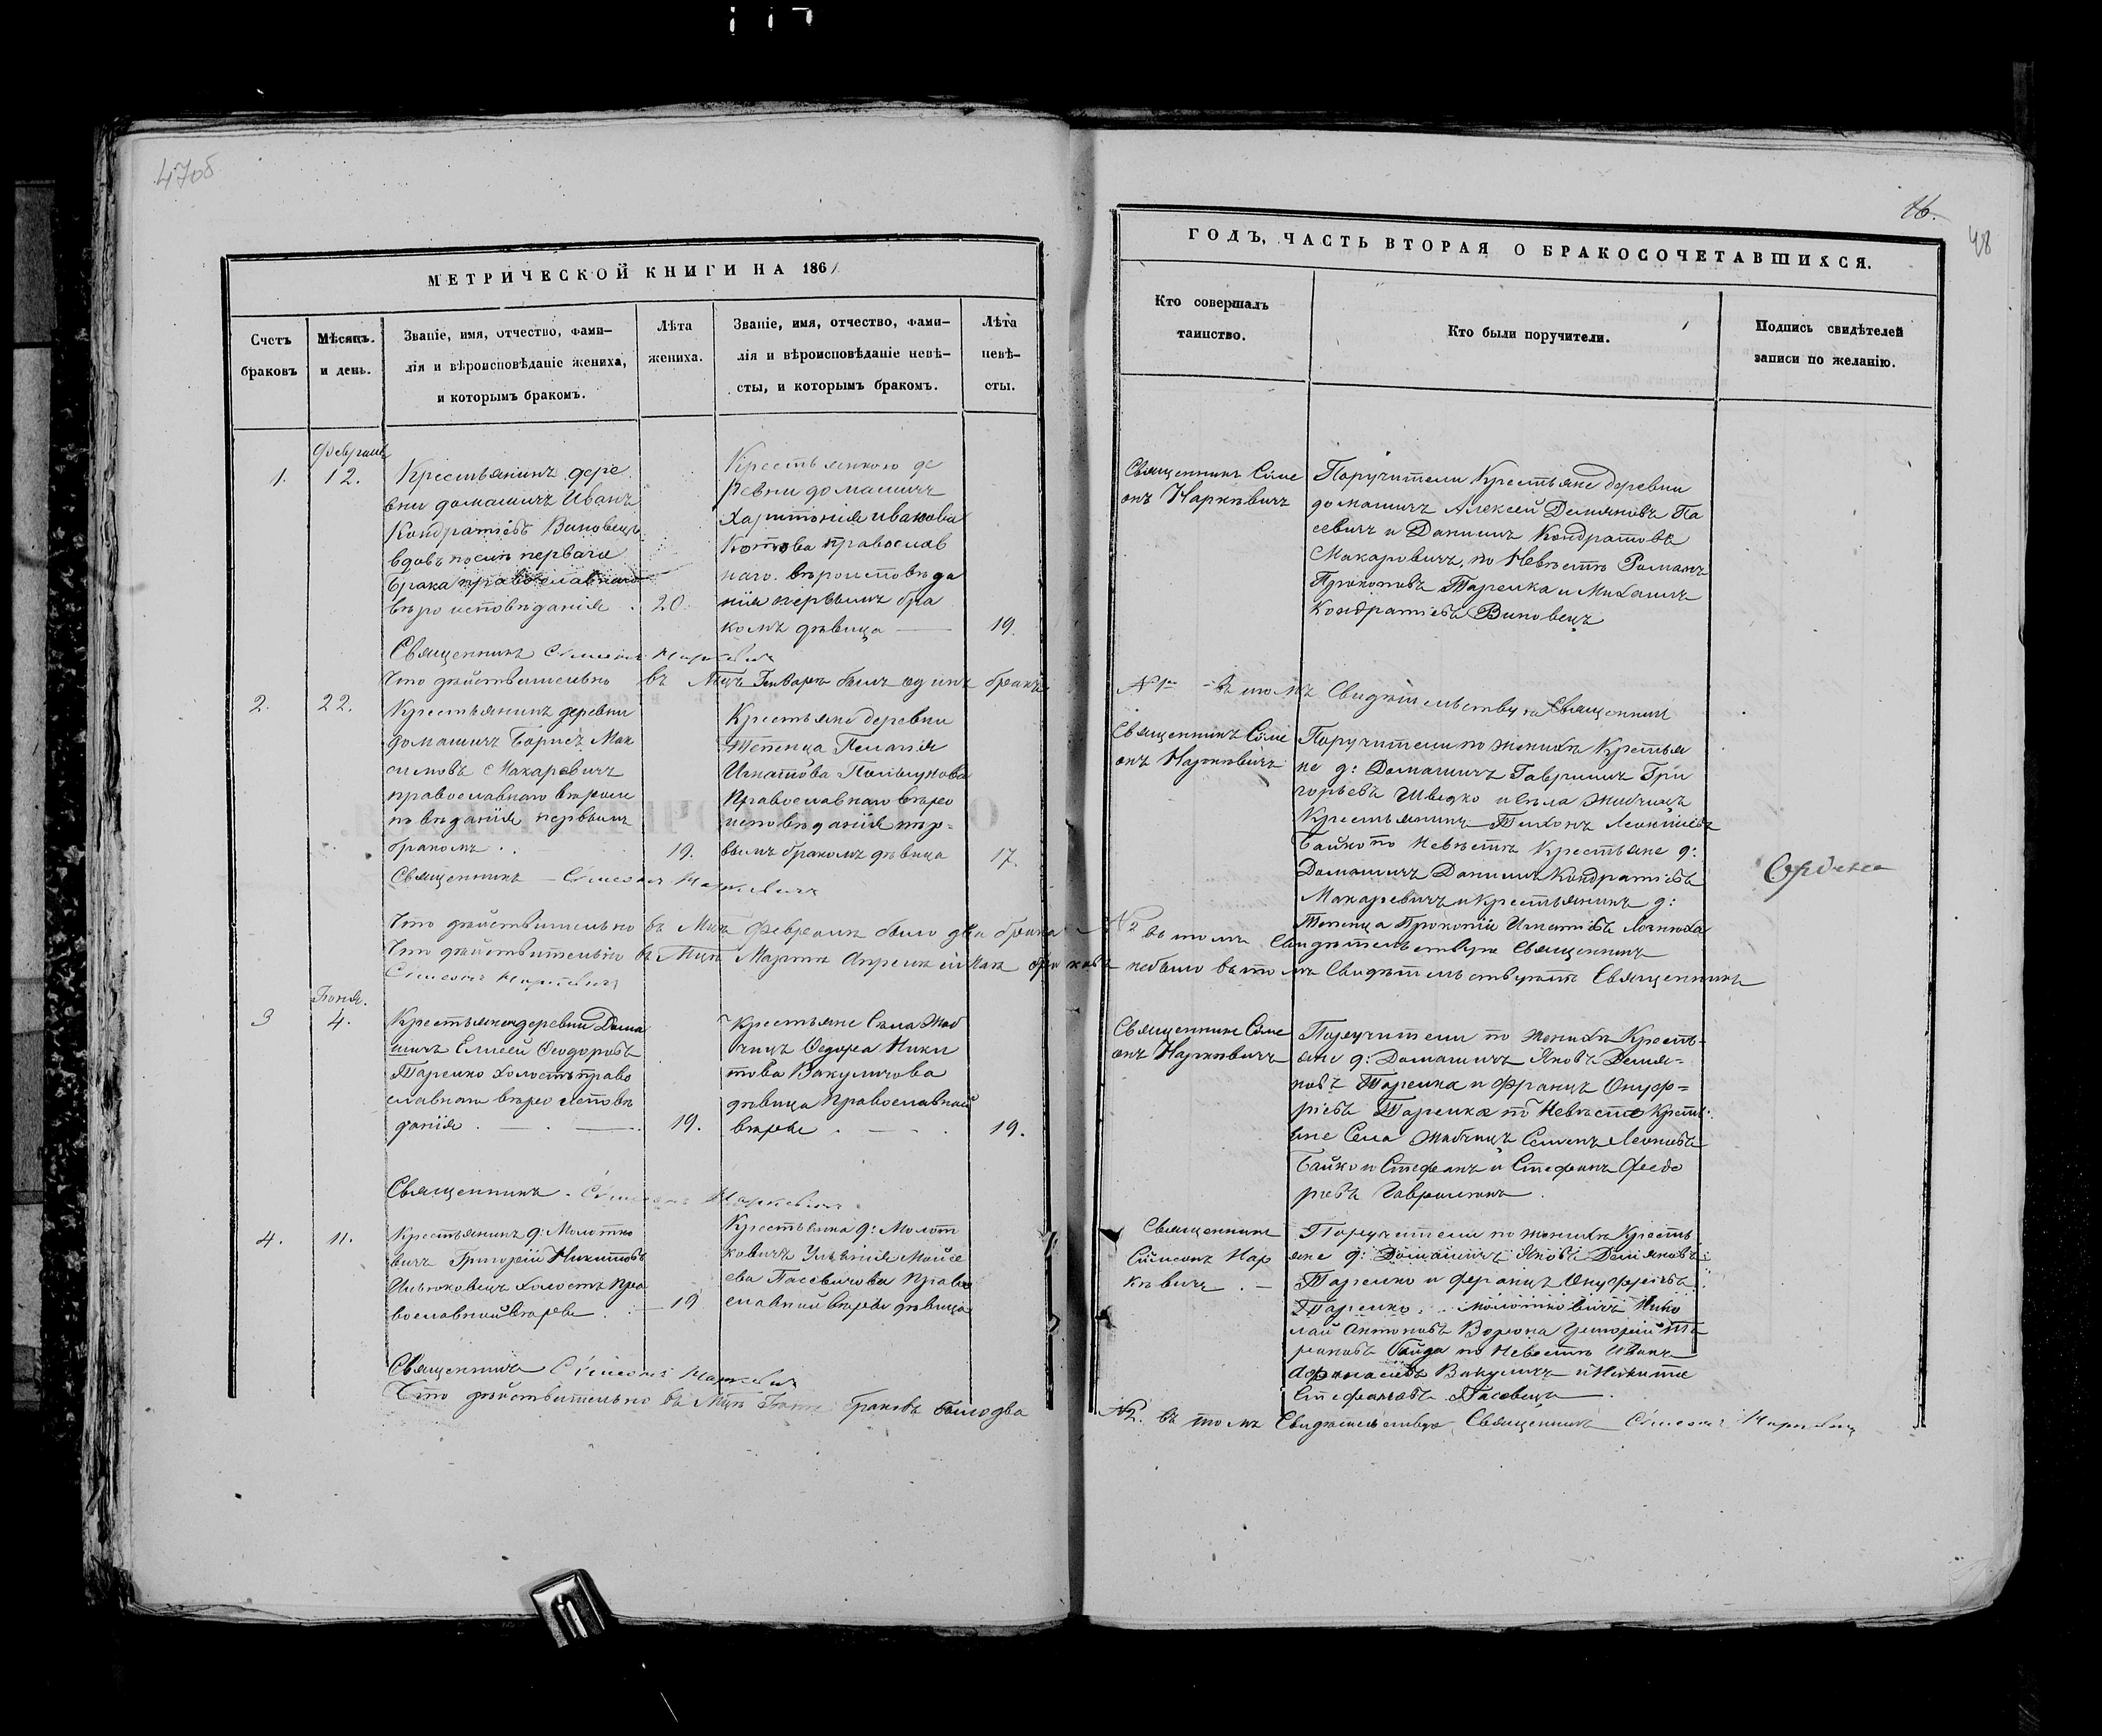 47об
МЕТРИЧЕСКОЙ КНИГИ НА 1861
Счетъ браковъ
Мѣсяцъ. и день.
Званіе, имя, отчество, фами-
лія и вѣроисповѣданіе жениха,
и которымъ бракомъ.
Лѣта
жениха.
Званіе, имя, отчество, фами-
лія и вѣроисповѣданіе невѣ-
сты, и которымъ бракомъ.
Лѣта
невѣ-
сты.
Февраль
1.
12.
Крестьянинъ дере
вни домашичъ Иванъ
Кондратіевъ Виновецъ
вдовъ послѣ перваго
брака православнаго
вѣроисповѣданія
20.
Крестьянкою де
ревни домашичъ
Харитонія иванова
Котова православ
наго вѣроисповѣда
нія первымъ бра
комъ дѣвица
19.
Священникъ Сѵмеонъ
Что дѣйствительно въ Мцѣ Генварѣ былъ одинъ бракъ
2.
22.
Крестьянинъ деревни
домашичъ Борисъ Мак
симовъ Макаревичъ
православнаго вѣроис
повѣданія первымъ
бракомъ
19.
Крестьяне деревни
Тепенца Пелагія
Игнатова
Православнаго вѣро
исповѣданія пер-
вымъ бракомъ дѣвица
17.
Священникъ Сѵмеонъ
Что дѣйствительно въ Мцѣ Февралѣ было два брака
Что дѣйствительно въ Мцѣ Мартѣ Апрелѣ и Маѣ браковъ
Сѵмеонъ
Іюня.
3
4.
Крестьянинъ деревни Дома
шичъ Елисей Ѳеодоровъ
Тарелко холостъ право
славнаго вѣро исповѣ
данія
19.
Крестьяне Села Жаб
чицъ Ѳедора Ники
това Вакуличова
дѣвица православной
вѣры
19.
Священникъ Сѵмеонъ
4.
11.
Крестьянинъ д: Молотко
вичъ Григорій Никитовъ
холостъ пра
вославной вѣры
19
Крестьянка д: Молот
ковичъ Ульянія Мойсе
ева Пасевичова право
славной вѣры дѣвица
Священникъ Сѵмеонъ
Что дѣйствительно въ Мцѣ Іюнѣ браковъ было два
16.
48
ГОДЪ, ЧАСТЬ ВТОРАЯ О БРАКОСОЧЕТАВШИХСЯ.
Кто совершалъ
таинство.
Кто были поручители.
Подпись свидѣтелей
записи по желанію.
Священникъ Сѵме
онъ Наркѣвичъ
Поручители Крестьяне деревни
домашичъ Алексей Демяновъ Па
севичъ и Даниилъ Кондратовъ
Макаровичъ, по Невѣстѣ Романъ
Прокоповъ Тарелка и Михаилъ
Кондратіевъ Виновецъ
№ 1 въ томъ Свидѣтельствую Священникъ
Священникъ Сѵме
онъ Наркѣвичъ
Поручители по женихѣ Крестья
не д: Домашичъ Гавриилъ Гри
горьевъ Шведко и села Жабчицъ
Крестьянинъ Тихонъ
Байко по Невѣстѣ Крестьяне д:
Домашичъ Даниилъ Кондратіевъ
Макаревичъ и Крестьянинъ д:
Тепенца Прокопій Игнатіевъ
№2 въ томъ Свидѣтельствую Священникъ
небыло въ томъ Свидѣтельствуетъ Священникъ
Священникъ Сѵме
онъ Наркѣвичъ
Поручители по женихѣ Кресть-
яне д: Домашичъ Яковъ Демя-
новъ Тарелка и Францъ Онуф-
ріевъ Тарелка по Невѣстѣ Кресть:
яне Села Жабчицъ Семенъ Леоновъ
Байко и Стефанъ и Стефанъ Федо
ровъ
Священникъ
Сѵмеонъ Нар
кѣвичъ
Поручители по женихѣ Кресть
яне д: Домашичъ Яковъ Демяновъ
Тарелко и Францъ Онуфріевъ
Тарелко, Молотковичъ Нико
лай Антоновъ Ворона Григорій
по Невѣстѣ Иванъ
Афанасіевъ Вакуличъ и Никита
Стефановъ Пасевецъ
№2. въ томъ Свидѣтельствую Священникъ Сѵмеонъ